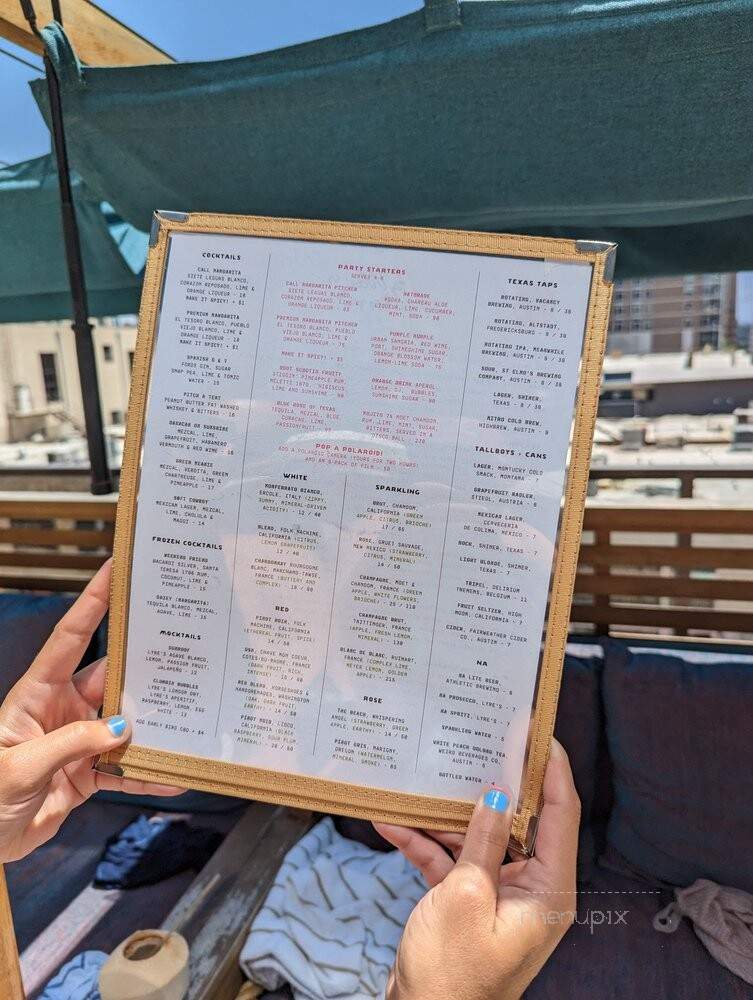 COCKTAILS
CALL MARGARITA
SIETE LEGUAS BLANCO,
CORAZON REPOSADO, LIME &
ORANGE LIQUEUR - 10
MAKE IT SPICY! + $1
PREMIUM MARGARITA
EL TESORO BLANCO, PUEBLO
VIEJO BLANCO, LIME &
ORANGE LIQUEUR - 18
MAKE IT SPICY! + $1
SPANISH G & T
FORDS GIN, SUGAR
SNAP PEA, LIME & TONIC
WATER - 15
PITCH A TENT
PEANUT BUTTER FAT WASHED
WHISKEY & BITTERS - 16
OAXACAN ON SUNSHINE
MEZCAL, LIME,
GRAPEFRUIT, HABANERO
VERMOUTH & RED WINE - 16
GREEN BEANIE
MEZCAL, VERDITA, GREEN
CHARTREUSE, LIME &
PINEAPPLE - 17
SOFT COWBOY
MEXICAN LAGER, MEZCAL,
LIME, CHOLULA &
MAGGI - 14
FROZEN COCKTAILS
WEEKEND FRIEND
BACARDI SILVER, SANTA
TERESA 1796 RUM,
COCONUT, LIME &
PINEAPPLE - 15
DAISY (MARGARITA)
TEQUILA BLANCO, MEZCAL,
AGAVE, LIME - 15
MOCKTAILS
SUNROOF
LYRE'S AGAVE BLANCO,
LEMON, PASSION FRUIT,
JALAPEÑO - 13
CLUMSIN BUBBLES
LYRE'S LONDON DRY
LYRE'S APERITIF,
RASPBERRY, LEMON, EGG
WHITE - 13
ADD EARLY BIRD CBD + $4
PARTY STARTERS
SERVES 4-6
CALL MARGARITA PITCHER
SIETE LEGUAS BLANCO,
CORAZON REPOSADO, LIME &
ORANGE LIQUEUR - 65
PREMIUM MARGARITA PITCHER
EL TESORO BLANCO, PUEBLO
VIEJO BLANCO, LIME &
ORANGE LIQUEUR - 75
MAKE IT SPICY! + $5
ROOT ROBOTIC FRUITY
STIGGINS' PINEAPPLE RUM,
MELETTI 1870, HIBISCUS
LIME AND SUNSHINE - 90
BLUE ROSE OF TEXAS
TEQUILA, MEZCAL, BLUE
CURACAO, LIME,
HATORADE
VODKA, CHAREAU ALOE
LIQUEUR, LIME, CUCUMBER,
MINT, SODA - 90
PURPLE RUMBLE
URBAN SANGRIA, RED WINE
PORT, DEMERARA SUGAR
ORANGE BLOSSOM WATER,
LEMON-LIME SODA - 75
ORANGE DRINK APEROL
LEMON, OJ, BUBBLES
SUNSHINE SUGAR - 80
MOJITO 76 MOET CHANDON,
RUM, LIME, MINT, SUGAR,
BITTERS, SERVED IN A
DISCO BALL - 220
POP A POLAROID!
ADD A POLAROID CAMERA (YOURS FOR TWO HOURS)
AND AN 8-PACK OF FILM - 50
WHITE
MONFERRATO BIANCO,
ERCOLE, ITALY (ZIPPY,
YUMMY, MINERAL-DRIVEN
ACIDITY) - 12 / 40
BLEND, FOLK MACHINE,
CALIFORNIA (CITRUS,
LEMON GRAPEFRUIT)
12 / 40
CHARDONNAY BOURGOGNE
BLANC, MARCHAND-TAWSE,
FRANCE (BUTTERY AND
COMPLEX) - 18 / 80
RED
PINOT NOIR, FOLK
MACHINE, CALIFORNIA
(ETHEREAL FRUIT, SPICE)
14 / 50
GSM, CHAVE MON COEUR,
COTES-DU-RHONE, FRANCE
(DARK FRUIT, HIGH
INTENSE) - 16 / 50
RED BLEND, HORSESHOES &
HANDGRENADES, WASHINGTON
(OAK, DARK FRUIT,
EARTHY) - 14 / 50
PINOT NOIR, LIOCO,
CALIFORNIA (BLACK
RASPBERRY, SOUR PLUM
MINERAL) - 20 / 80
SPARKLING
BRUT, CHANDON,
CALIFORNIA (GREEN
APPLE, CITRUS, BRIOCHE)
17 / 65
ROSE, GRUET SAUVAGE,
NEW MEXICO (STRAWBERRY,
CITRUS, MINERAL)
14 / 50
CHAMPAGNE, MOET &
CHANDON, FRANCE (GREEN
APPLE, WHITE FLOWERS,
BRIOCHE) - 25 / 110
CHAMPAGNE BRUT
TAITTINGER, FRANCE
(APPLE, FRESH LEMON,
MINERAL) - 130
BLANC DE BLANC, RUINART,
FRANCE (COMPLEX LIME,
MEYER LEMON, GOLDEN
APPLE) - 215
ROSE
THE BEACH, WHISPERING
ANGEL (STRAWBERRY, GREEN
APPLE, EARTHY) - 14 / 50
PINOT GRIS, MARIGNY,
OREGON (WATERMELON,
MINERAL, SMOKE) - 65
TEXAS TAPS
ROTATING, VACANCY
BREWING, AUSTIN - 8 / 30
ROTATING, ALTSTADT,
FREDERICKSBURG - 8 / 30
ROTATING IPA, MEANWHILE
BREWING, AUSTIN - 8 / 30
SOUR, ST ELMO'S BREWING
COMPANY, AUSTIN - 8 / 30
LAGER, SHINER,
TEXAS - 8 / 30
NITRO COLD BREW,
HIGHBREW, AUSTIN - 8
TALLBOYS + CANS
LAGER, MONTUCKY COLD
SNACK, MONTANA - 7
GRAPEFRUIT RADLER,
STIEGL, AUSTRIA - 6
MEXICAN LAGER,
CERVECERIA
DE COLIMA, MEXICO - 7
BOCK, SHINER, TEXAS - 7
LIGHT BLONDE, SHINER,
TEXAS - 7
TRIPEL, DELIRIUM
TREMENS, BELGIUM - 11
FRUIT SELTZER, HIGH
NOON, CALIFORNIA - 7
CIDER, FAIRWEATHER CIDER
CO., AUSTIN - 7
NA
NA LITE BEER,
ATHLETIC BREWING - 6
NA PROSECCO, LYRE'S - 7
NA SPRITZ, LYRE'S - 7
SPARKLING WATER - 5
WHITE PEACH OOLONG TEA,
WEIRD BEVERAGES CO,
AUSTIN - 6
BOTTLED WATER - 4
menupix